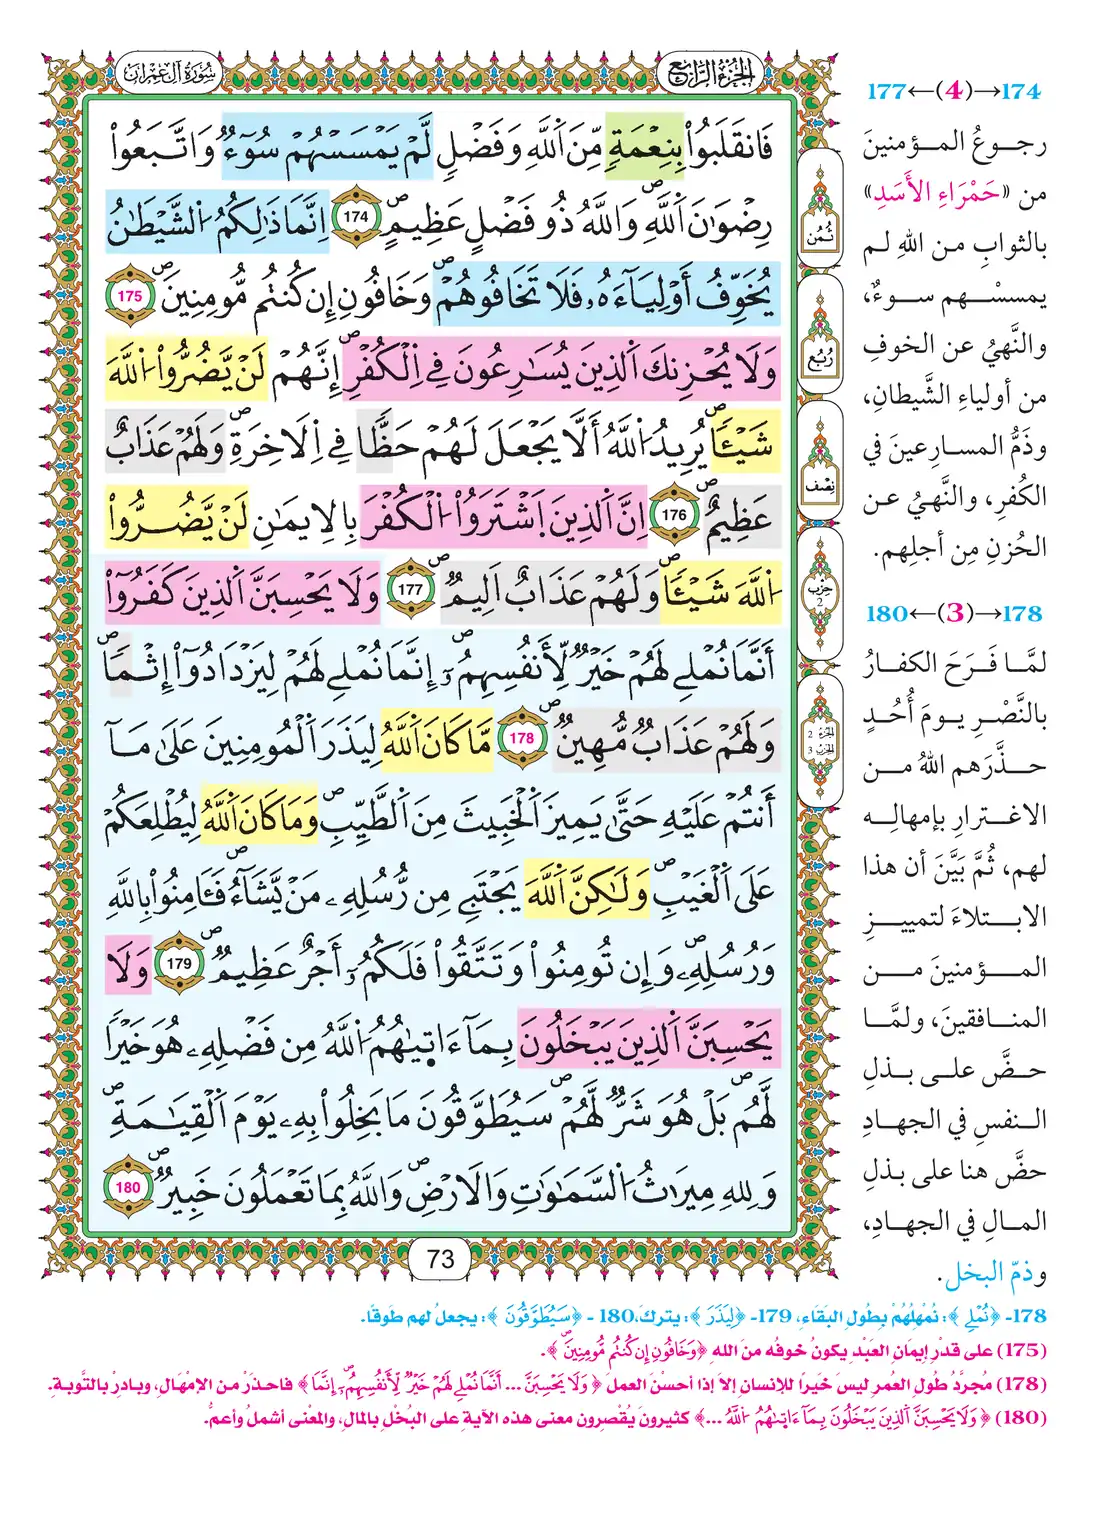 سُورَةُ آلِ عِمْرَان
الجُزْءُ الرَّابِعُ
فَانقَلَبُواْ بِنِعْمَةٍ مِّنَ اَ۬للَّهِ وَفَضْلٍ لَّمْ يَمْسَسْهُمْ سُوٓءٌ وَاتَّبَعُواْ
رِضْوَٰنَ اَ۬للَّهِۖ وَاللَّهُ ذُو فَضْلٍ عَظِيمٍۖ 174 اِنَّمَا ذَٰلِكُمُ اُ۬لشَّيْطَٰنُ
يُخَوِّفُ أَوْلِيَآءَهُۥ فَلَا تَخَافُوهُمْۖ وَخَافُونِ إِن كُنتُم مُّومِنِينَۖ 175
وَلَا يُحْزِنكَ اَ۬لذِينَ يُسَٰرِعُونَ فِے اِ۬لْكُفْرِۖ إِنَّهُمْ لَنْ يَّضُرُّواْ اُ۬للَّهَ
شَيْـٔاًۖ يُرِيدُ اُ۬للَّهُ أَلَّا يَجْعَلَ لَهُمْ حَظّاً فِے اِ۬لَاخِرَةِۖ وَلَهُمْ عَذَابٌ
عَظِيمٌۖ 176 اِنَّ اَ۬لذِينَ اَ۪شْتَرَوُاْ اُ۬لْكُفْرَ بِالِايمَٰنِ لَنْ يَّضُرُّواْ
اُ۬للَّهَ شَيْـٔاًۖ وَلَهُمْ عَذَابٌ اَلِيمٌۖ 177 وَلَا يَحْسِبَنَّ اَ۬لذِينَ كَفَرُوٓاْ
أَنَّمَا نُمْلِے لَهُمْ خَيْرٌ لِّأَنفُسِهِمُۥٓۖ إِنَّمَا نُمْلِے لَهُمْ لِيَزْدَادُوٓاْ إِثْماًۖ
وَلَهُمْ عَذَابٌ مُّهِينٌۖ 178 مَّا كَانَ اَ۬للَّهُ لِيَذَرَ اَ۬لْمُومِنِينَ عَلَىٰ مَآ
أَنتُمْ عَلَيْهِ حَتَّىٰ يَمِيزَ اَ۬لْخَبِيثَ مِنَ اَ۬لطَّيِّبِۖ وَمَا كَانَ اَ۬للَّهُ لِيُطْلِعَكُمْ
عَلَى اَ۬لْغَيْبِۖ وَلَٰكِنَّ اَ۬للَّهَ يَجْتَبِے مِن رُّسُلِهِۦ مَنْ يَّشَآءُۖ فَـَٔامِنُواْ بِاللَّهِ
وَرُسُلِهِۦۖ وَإِن تُومِنُواْ وَتَتَّقُواْ فَلَكُمُۥٓ أَجْرٌ عَظِيمٌۖ 179 وَلَا
يَحْسِبَنَّ اَ۬لذِينَ يَبْخَلُونَ بِمَآ ءَات۪يٰهُمُ اُ۬للَّهُ مِن فَضْلِهِۦ هُوَ خَيْراً
لَّهُمۖ بَلْ هُوَ شَرٌّ لَّهُمْۖ سَيُطَوَّقُونَ مَا بَخِلُواْ بِهِۦ يَوْمَ اَ۬لْقِيَٰمَةِۖ
وَلِلهِ مِيرَٰثُ اُ۬لسَّمَٰوَٰتِ وَالَارْضِۖ وَاللَّهُ بِمَا تَعْمَلُونَ خَبِيرٌۖ 180
73
ثُمُن
رُبُع
نِصْف
حِزْب
2
الجزء 2
الحزب 3
177←(4)→174
رجــوعُ المــؤمنينَ
من «حَمْرَاءِ الأَسَدِ»
بالثوابِ مـن اللهِ لـم
يمسسْـهم سـوءٌ،
والنَّهيُ عن الخوفِ
من أولياءِ الشَّيطانِ،
وذَمُّ المسـارِعينَ في
الكُفرِ، والنَّهيُ عـن
الحُزنِ مِن أجلِهم.
180←(3)→178
لمَّـا فَـرَحَ الكفارُ
بالنَّصْـرِ يـومَ أُحُـدٍ
حـذَّرَهم اللهُ مـن
الاغـترارِ بإمهالِـه
لهم، ثُمَّ بَيَّنَ أن هذا
الابـتلاءَ لتمييـزِ
المـؤمنينَ مـن
المنـافقينَ، ولمَّـا
حـضَّ علـى بـذلِ
الـنفسِ في الجهـادِ
حضَّ هنا على بـذلِ
المـالِ في الجهـادِ،
وذمّ البخل.
178- ﴿نُمْلِے﴾: نُمْهِلُهُمْ بِطُولِ البَقَاءِ، 179- ﴿لِيَذَرَ﴾: يتركَ، 180 - ﴿سَيُطَوَّقُونَ﴾: يجعلُ لهم طَوقًا.
(175) على قدْرِ إيمَانِ العَبْدِ يكونُ خوفُه منَ اللهِ ﴿وَخَافُونِ إِن كُنتُم مُّومِنِينَۖ﴾.
(178) مُجرَّدُ طُولِ العُمرِ ليسَ خَيرًا للإنسانِ إلا إذا أحسْنَ العملَ ﴿وَلَا يَحْسِبَنَّ ... أَنَّمَا نُمْلِے لَهُمْ خَيْرٌ لِّأَنفُسِهِمُۥٓۖ إِنَّمَا﴾ فاحذرْ منَ الإمْهَالِ، وبادرْ بالتَّوبةِ.
(180) ﴿وَلَا يَحْسِبَنَّ اَ۬لذِينَ يَبْخَلُونَ بِمَآ ءَات۪يٰهُمُ اُ۬للَّهُ ...﴾ كثيرونَ يُقْصِرونَ معنى هذه الآيةِ على البُخْلِ بالمالِ، والمْعنى أشملُ وأعمُّ.